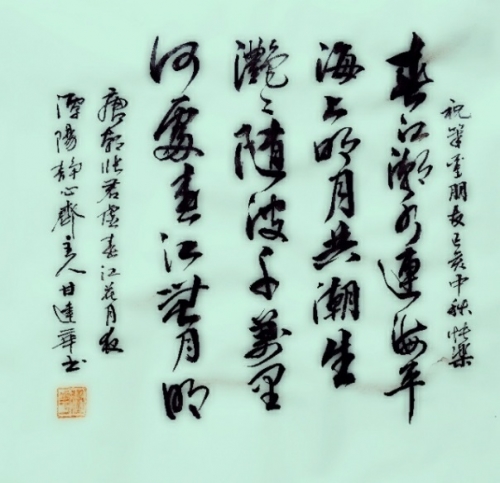 祝朋友己亥中秋快樂
春江潮水連海平
海上明月共潮生
灩々隨波千萬里
何處春江無月明
唐朝張若虛春江花月夜
陽靜心齋主人甘達華书